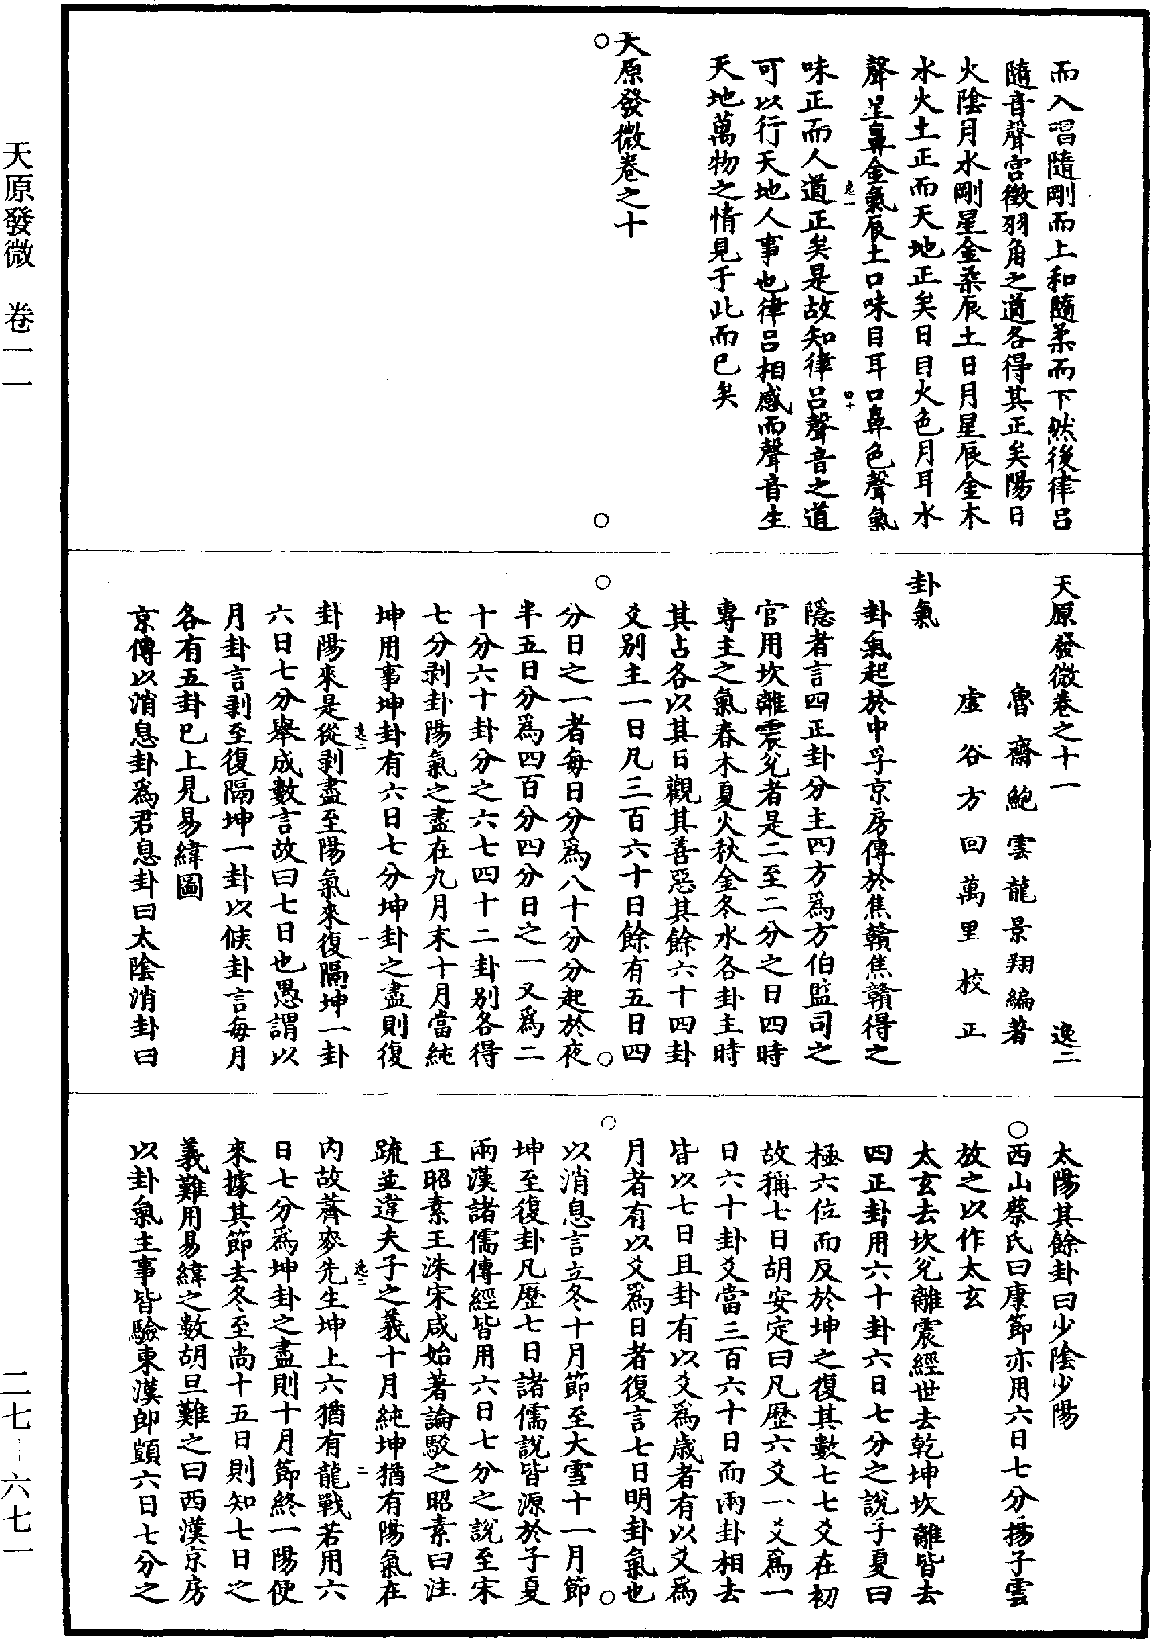 而入唱隨剛而上和隨柔而下然後律呂
隨音聲宮徵羽角之道各得其正矣陽日
火陰月水剛星金柔辰土日月星辰金木
水火土正而天地正矣日目火色月耳水
聲星鼻金氣辰土口味目耳口鼻色聲氣
味正而人道正矣是故知律呂聲音之道
可以行天地人事也律呂相感而聲音生
天地萬物之情見于此而已矣
天原發微卷之十
天原發微卷之十一 逸二
魯齋鮑雲龍景翔編著
虛谷方回萬里校正
卦氣
卦氣起於中孚京房傳於焦贛焦贛得之
隱者言四正卦分主四方為方伯監司之
官用坎離震兌者是二至二分之日四時
專主之氣春木夏火秋金冬水各卦主時
其占各以其日觀其善惡其餘六十四卦
爻別主一日凡三百六十日餘有五日四
分日之一者每日分為八十分分起於夜
半五日分為四百分四分日之一又為二
十分六十卦分之六七四十二卦別各得
七分剥卦陽氣之盡在九月末十月當純
坤用事坤卦有六日七分坤卦之盡則復
卦陽來是從剥盡至陽氣來復隔坤一卦
六日七分舉成數言故曰七日也愚謂以
月卦言剥至復隔坤一卦以候卦言每月
各有五卦已上見易緯圖
京傳以消息卦為君息卦曰太陰消卦曰
太陽其餘卦曰少陰少陽
○西山蔡氏曰康節亦用六日七分揚子雲
放之以作太玄
太玄去坎兌離震經世去乾坤坎離皆去
四正卦用六十卦六日七分之說子夏曰
極六位而反於坤之復其數七七爻在初
故稱七日胡安定曰凡歷六爻一爻為一
日六十卦爻當三百六十日而兩卦相去
皆以七日且卦有以爻為歲者有以爻為
月者有以爻為日者復言七日明卦氣也
以消息言立冬十月節至大雪十一月節
坤至復卦凡歷七日諸儒說皆源於子夏
兩漢諸儒傳經皆用六日七分之說至宋
王昭素王洙宋咸始著論駁之昭素曰注
疏並違夫子之義十月純坤猶有陽氣在
內故薺麥先生坤上六猶有龍戰若用六
日七分為坤卦之盡則十月節終一陽便
來據其節去冬至尚十五日則知七日之
義難用易緯之數胡旦難之曰西漢京房
以卦氣主事皆驗東漢郎顗六日七分之
天原發微 卷一一
二七—六七一